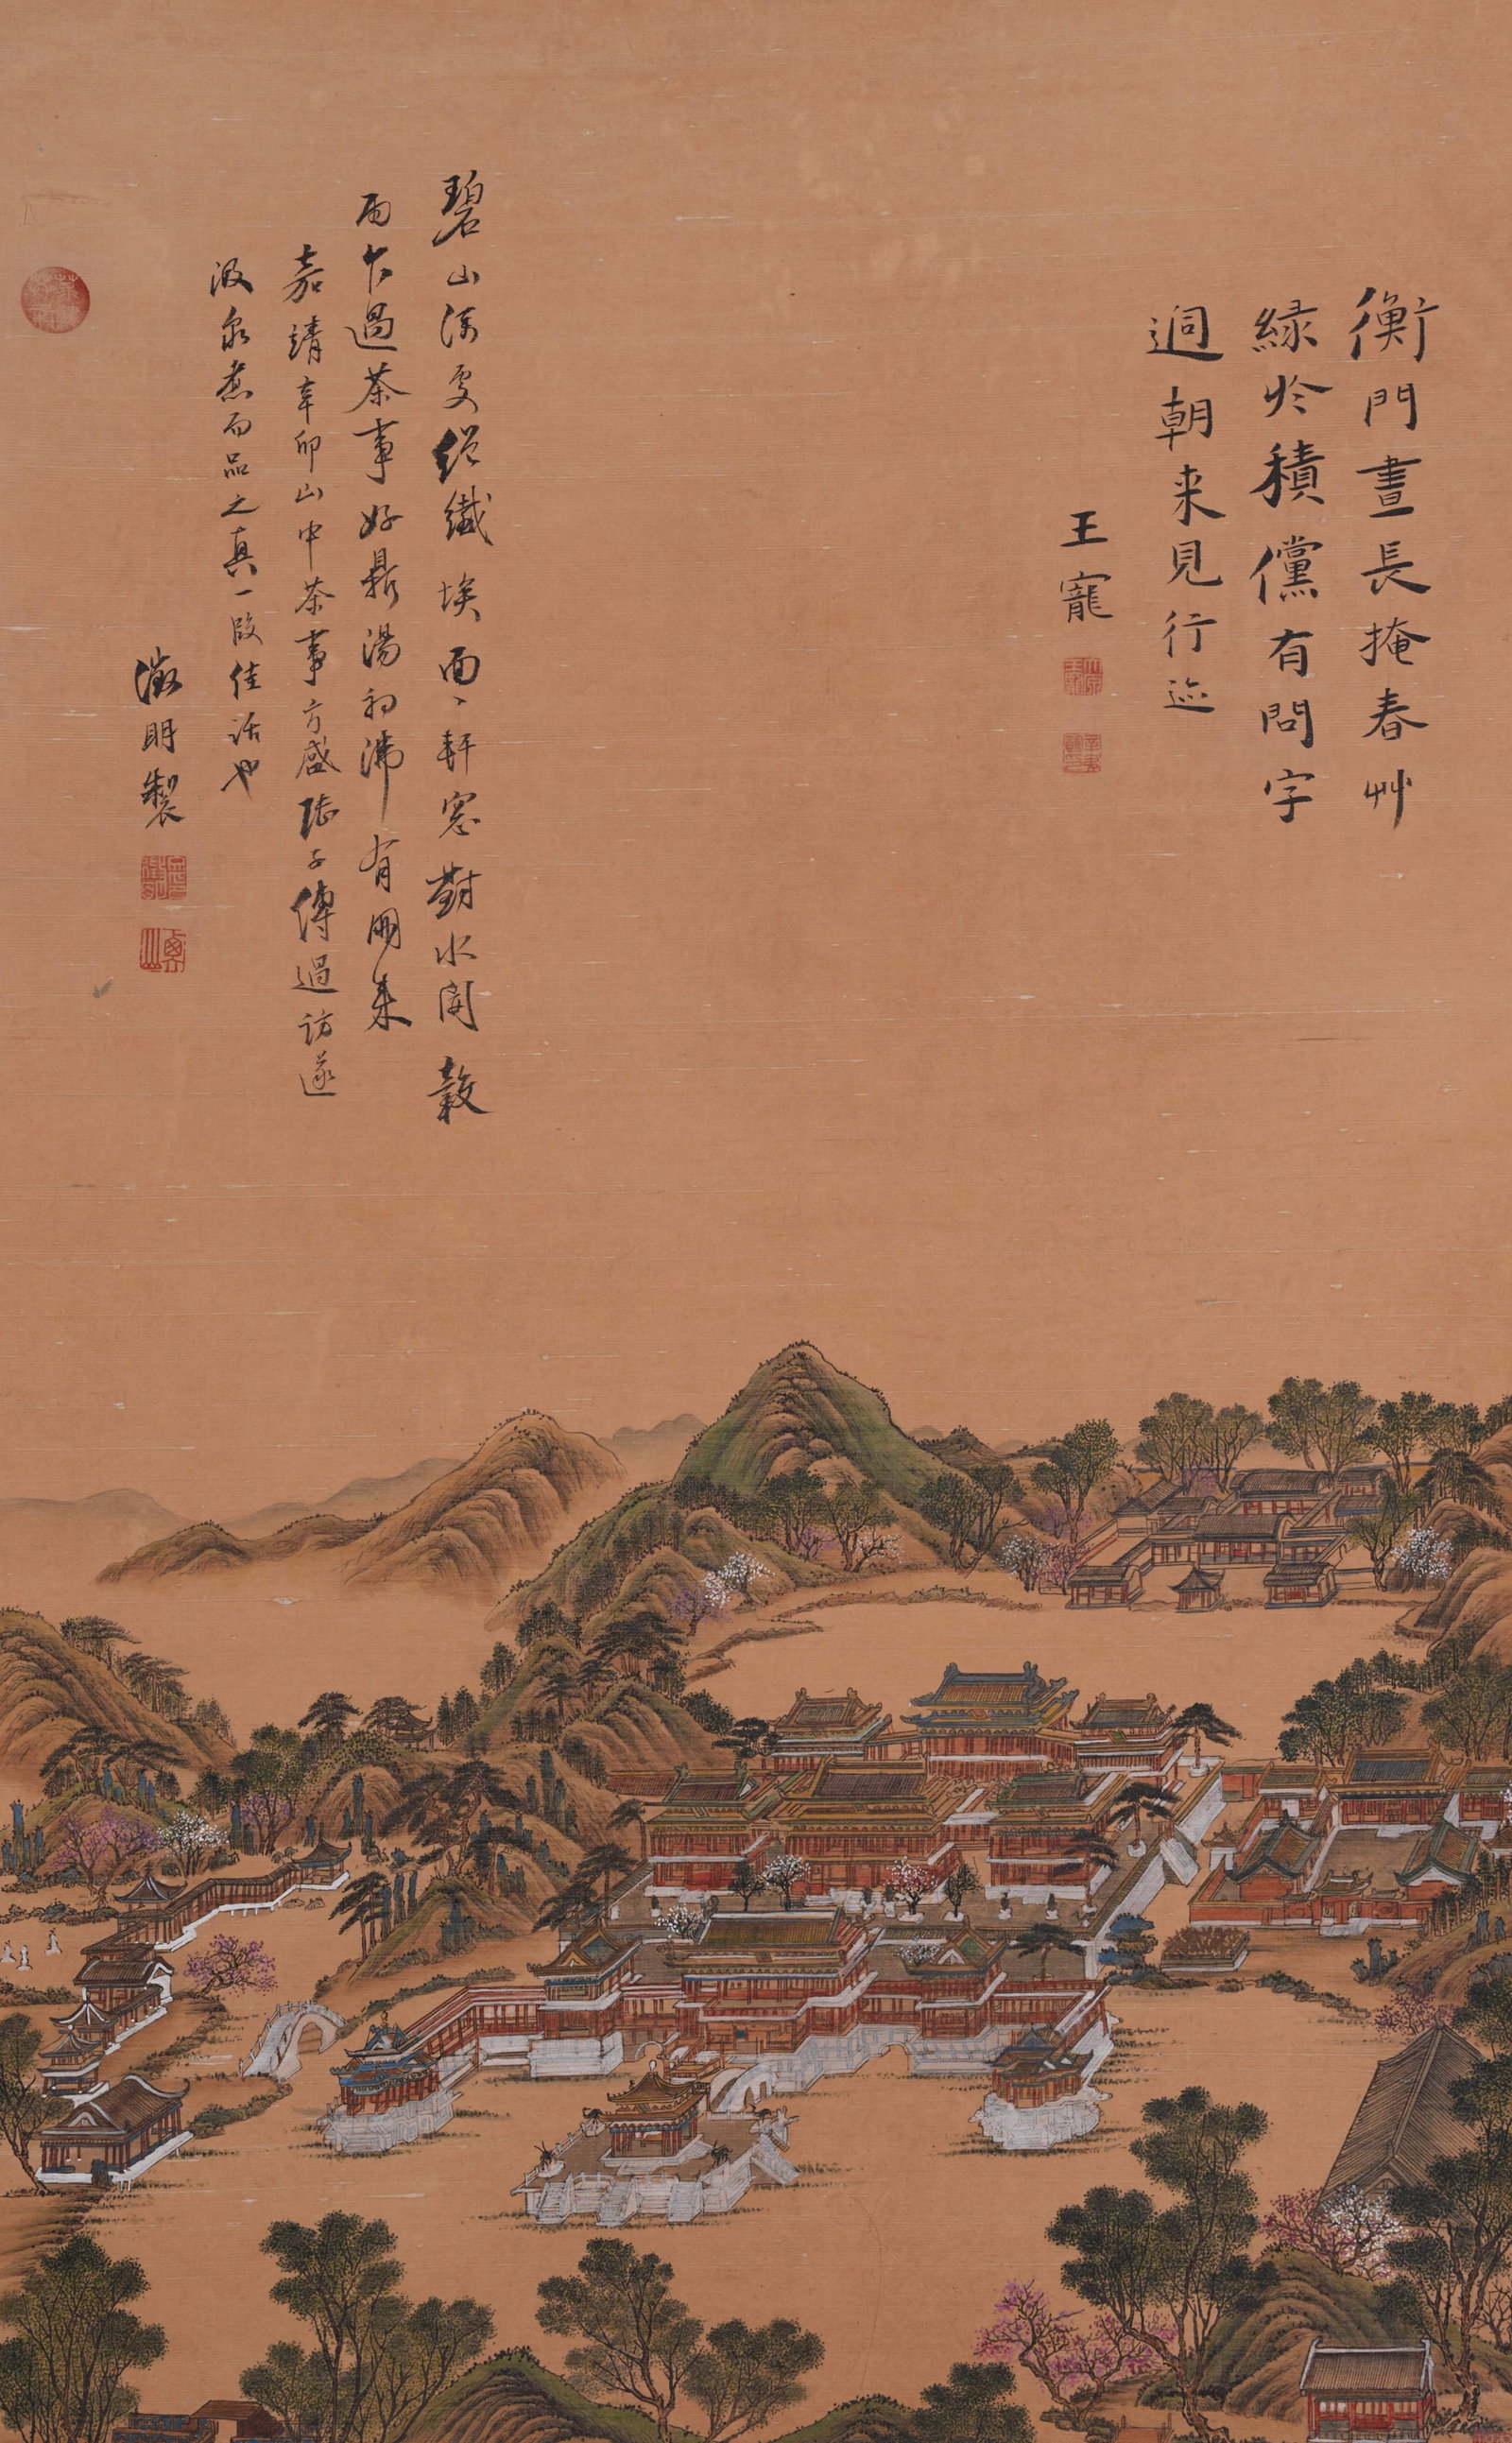 衡門晝長掩春艸
綠於積儻有問字
過朝来見行迹
王寵
碧山深處絕纖埃面〻軒窓對水開穀
雨乍過茶事好鼎湯初沸有朋来
嘉靖辛卯山中茶事方盛陸子傅過訪遂
汲泉煮而品之真一段佳話也
徵明製